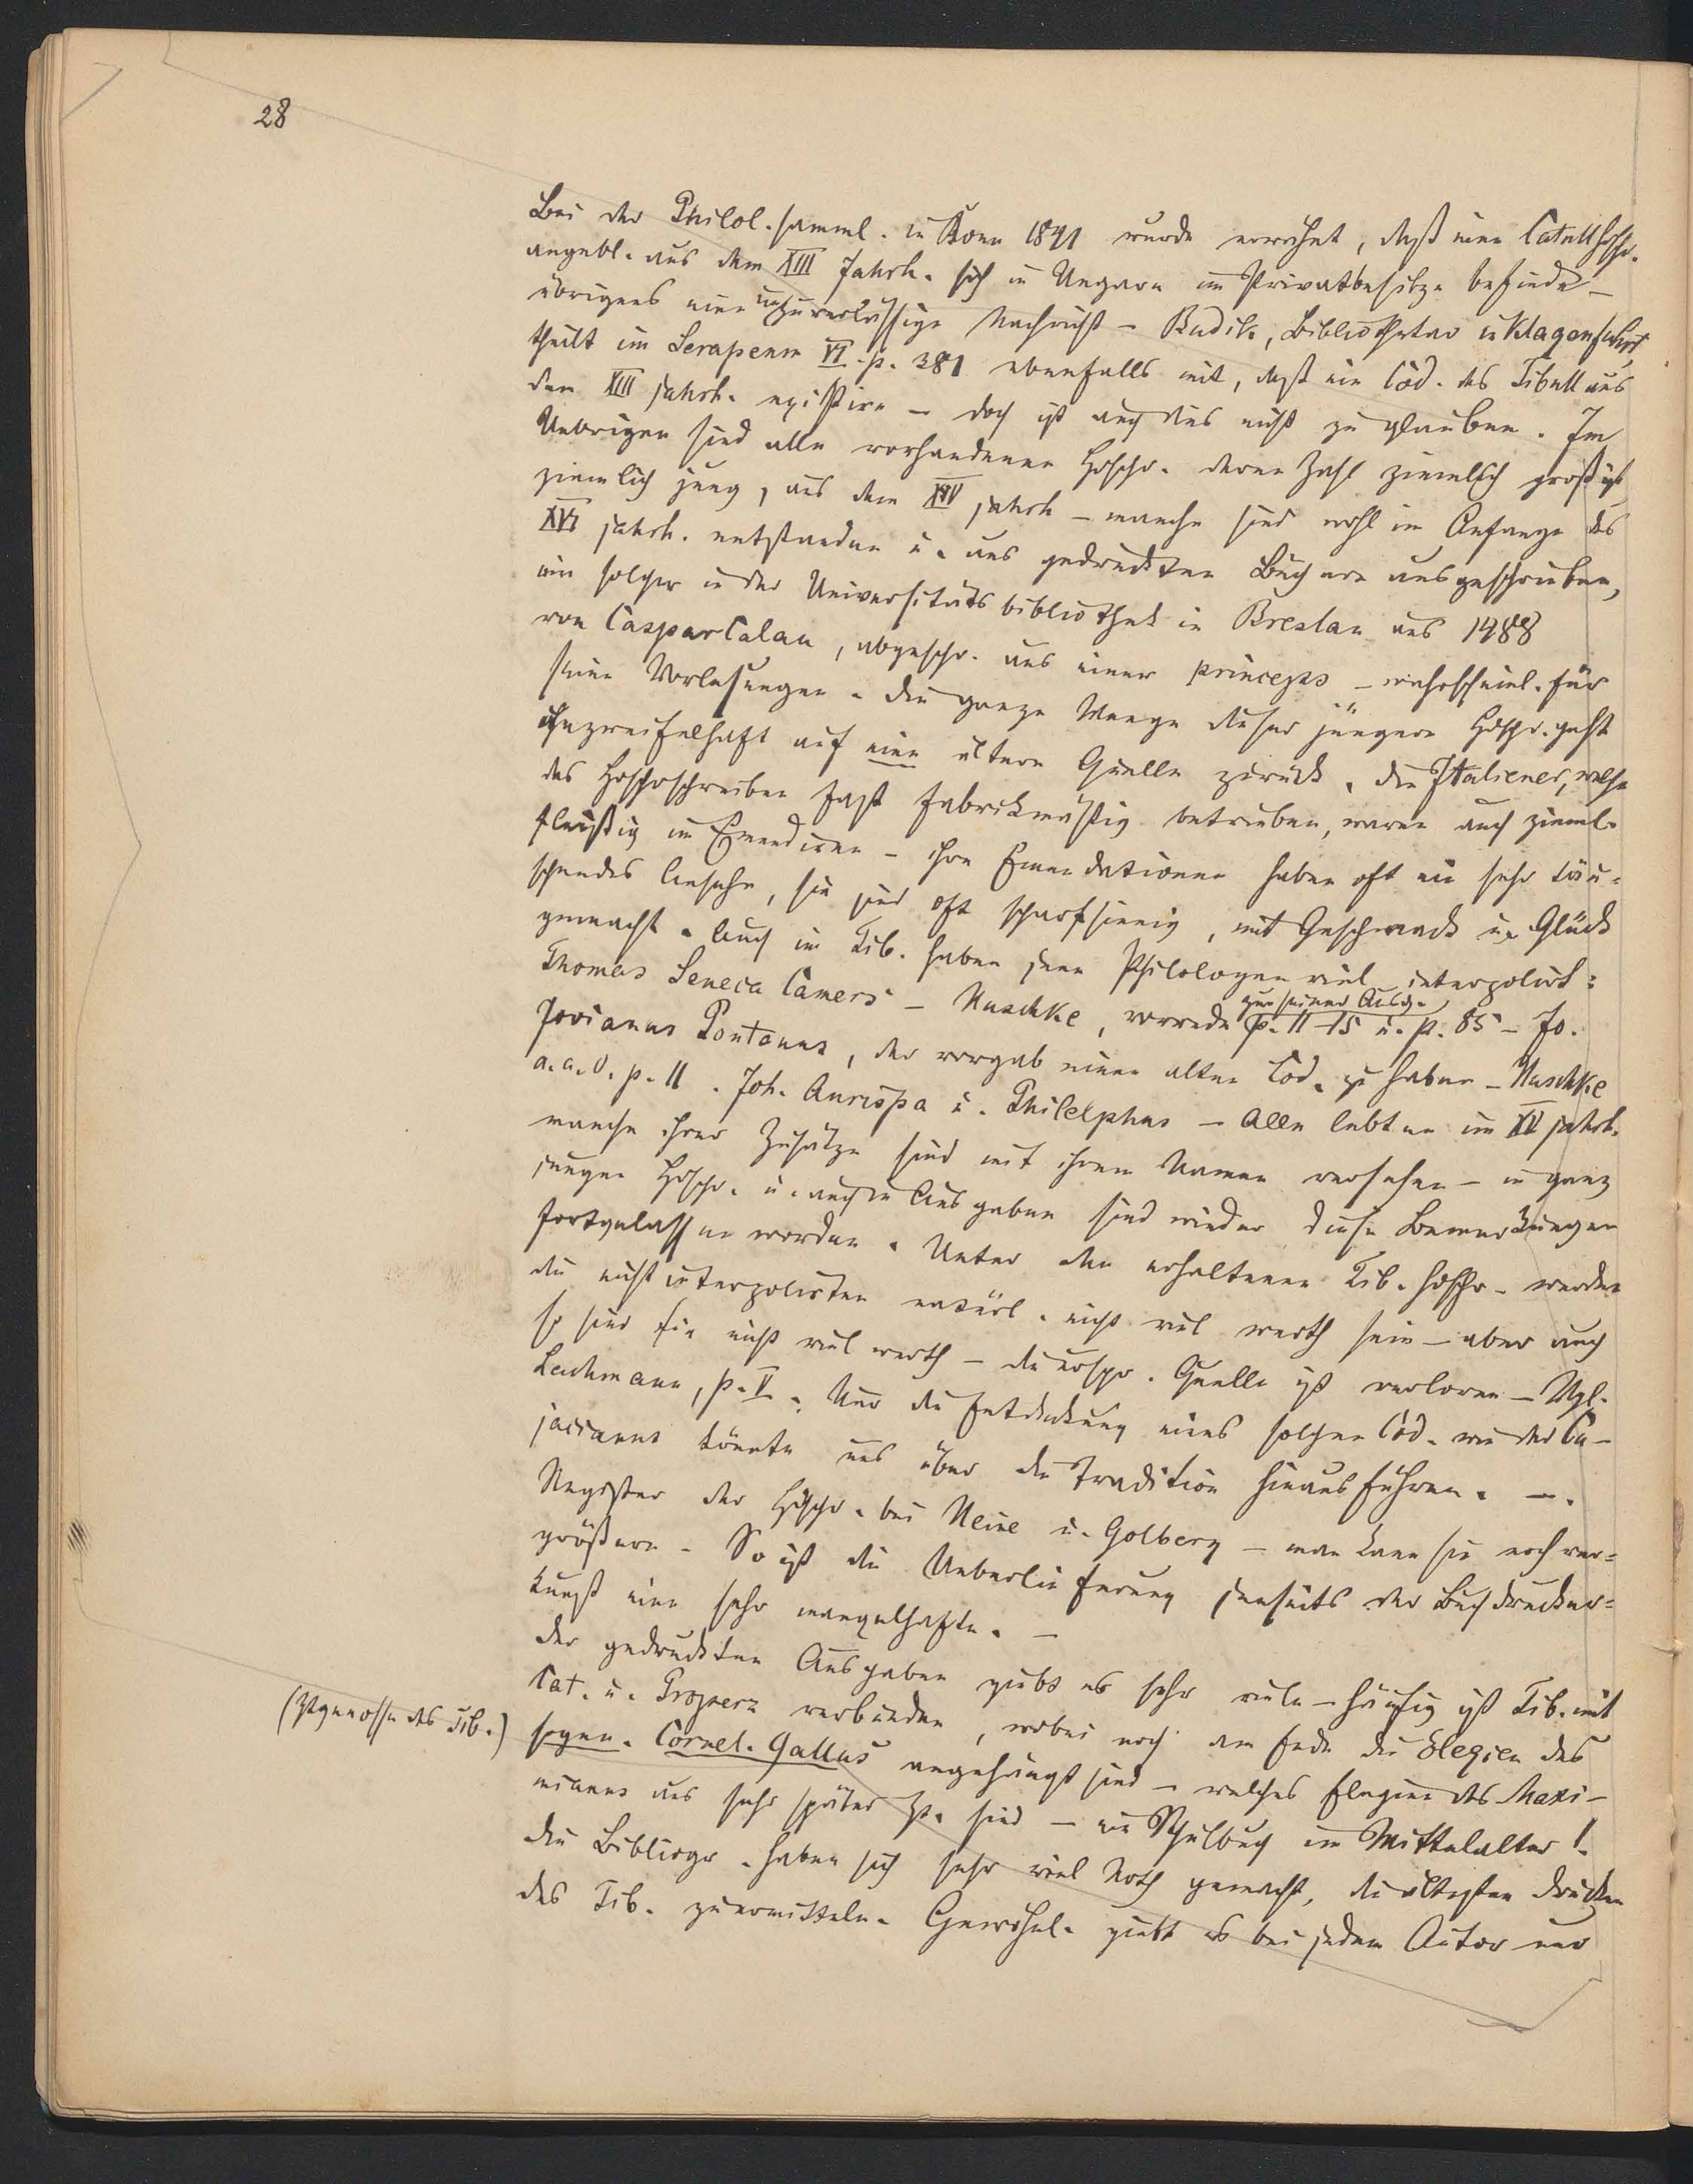 28
Bei der Philol. samml. in Bonn 1841 wurde erwähnt, daß eine Catullhschr.
angebl. aus dem XIII Jahrh. sich in Ungarn im Privatbesitze befinde –
übrigens eine unzuverlässige Nachricht – Budik, Bibliothekar in Klagenfurt,
theilt im Serapeum VI. p. 381 ebenfalls mit, daß ein Cod. des Tibull aus
dem XIII Jahrh. existire – doch ist auch dies nicht zu glauben. Im
Uebrigen sind alle vorhandenen Hdschr. deren Zahl ziemlich groß ist
ziemlich jung, aus dem XV Jahrh – manche sind wohl im Anfange des
XVI Jahrh. entstanden u. aus gedruckten Büchern ausgeschrieben,
ein solcher in der Universitätsbibliothek in Breslau aus 1488
von Caspar Calau, abgeschr. aus einer princeps – wahrscheinl. für
seine Vorlesungen. Die ganze Menge dieser jüngere Hdschr. geht
unzweifelhaft auf eine ältere Quelle zurück. Die Italiener, welche
das Hdschrschreiben fast fabrikmäßig betrieben, waren auch zieml.
fleißig im Emendiren – ihre Emendationen haben oft ein sehr täu-
schendes Ansehn, sie sind oft scharfsinnig, mit Geschmack u. Glück
gemacht. Auch im Tib. haben jene Philologen viel interpolirt:
Thomas Seneca Camers – Huschke, vorrede zu seiner Ausg. p. 11–15 u. p. 85 – Jo.
Jovianus Pontanus, der vorgab einen alten Cod. zu haben – Huschke
a. a. O. p. 11. Joh. Aurispa u. Philelphus – Alle lebten im XV Jahrh.
manche ihrer Zusätze sind mit ihrem Namen versehen – in ganz
jungen Hdschr. u. auch in Ausgaben sind wieder diese Bemerkungen
fortgelassen worden. Unter den erhaltenen Tib. Hdschr. werden
die nicht interpolirten natürl. nicht viel werth sein – aber auch
so sind sie nicht viel werth – die urspr. Quelle ist verloren – Vgl.
Lachmann, p. V. Nur die Entdeckung eines solchen Cod. wie der Cu-
jacianus könnte uns über die Tradition hinausführen. –.
Register der Hdschr. bei Heine u. Golbery – man kann sie noch ver-
größern. – So ist die Ueberlieferung jenseits der Buchdrucker-
kunst eine sehr mangelhafte. –
Der gedruckten Ausgaben giebt es sehr viele – häufig ist Tib. mit
Cat. u. Properz verbunden, wobei noch am Ende die Elegien des
(Ztgenosse des Tib.) sogen. Cornel. Gallus angehängt sind – welches Elegien des Maxi-
mianus aus sehr später Zt. sind – ein Schulbuch im Mittelalter!
Die Bibliogr. haben sich sehr viel Noth gemacht, die ältesten Drucke
des Tib. zu ermitteln. Gewöhnl. giebt es bei jedem Autor nur